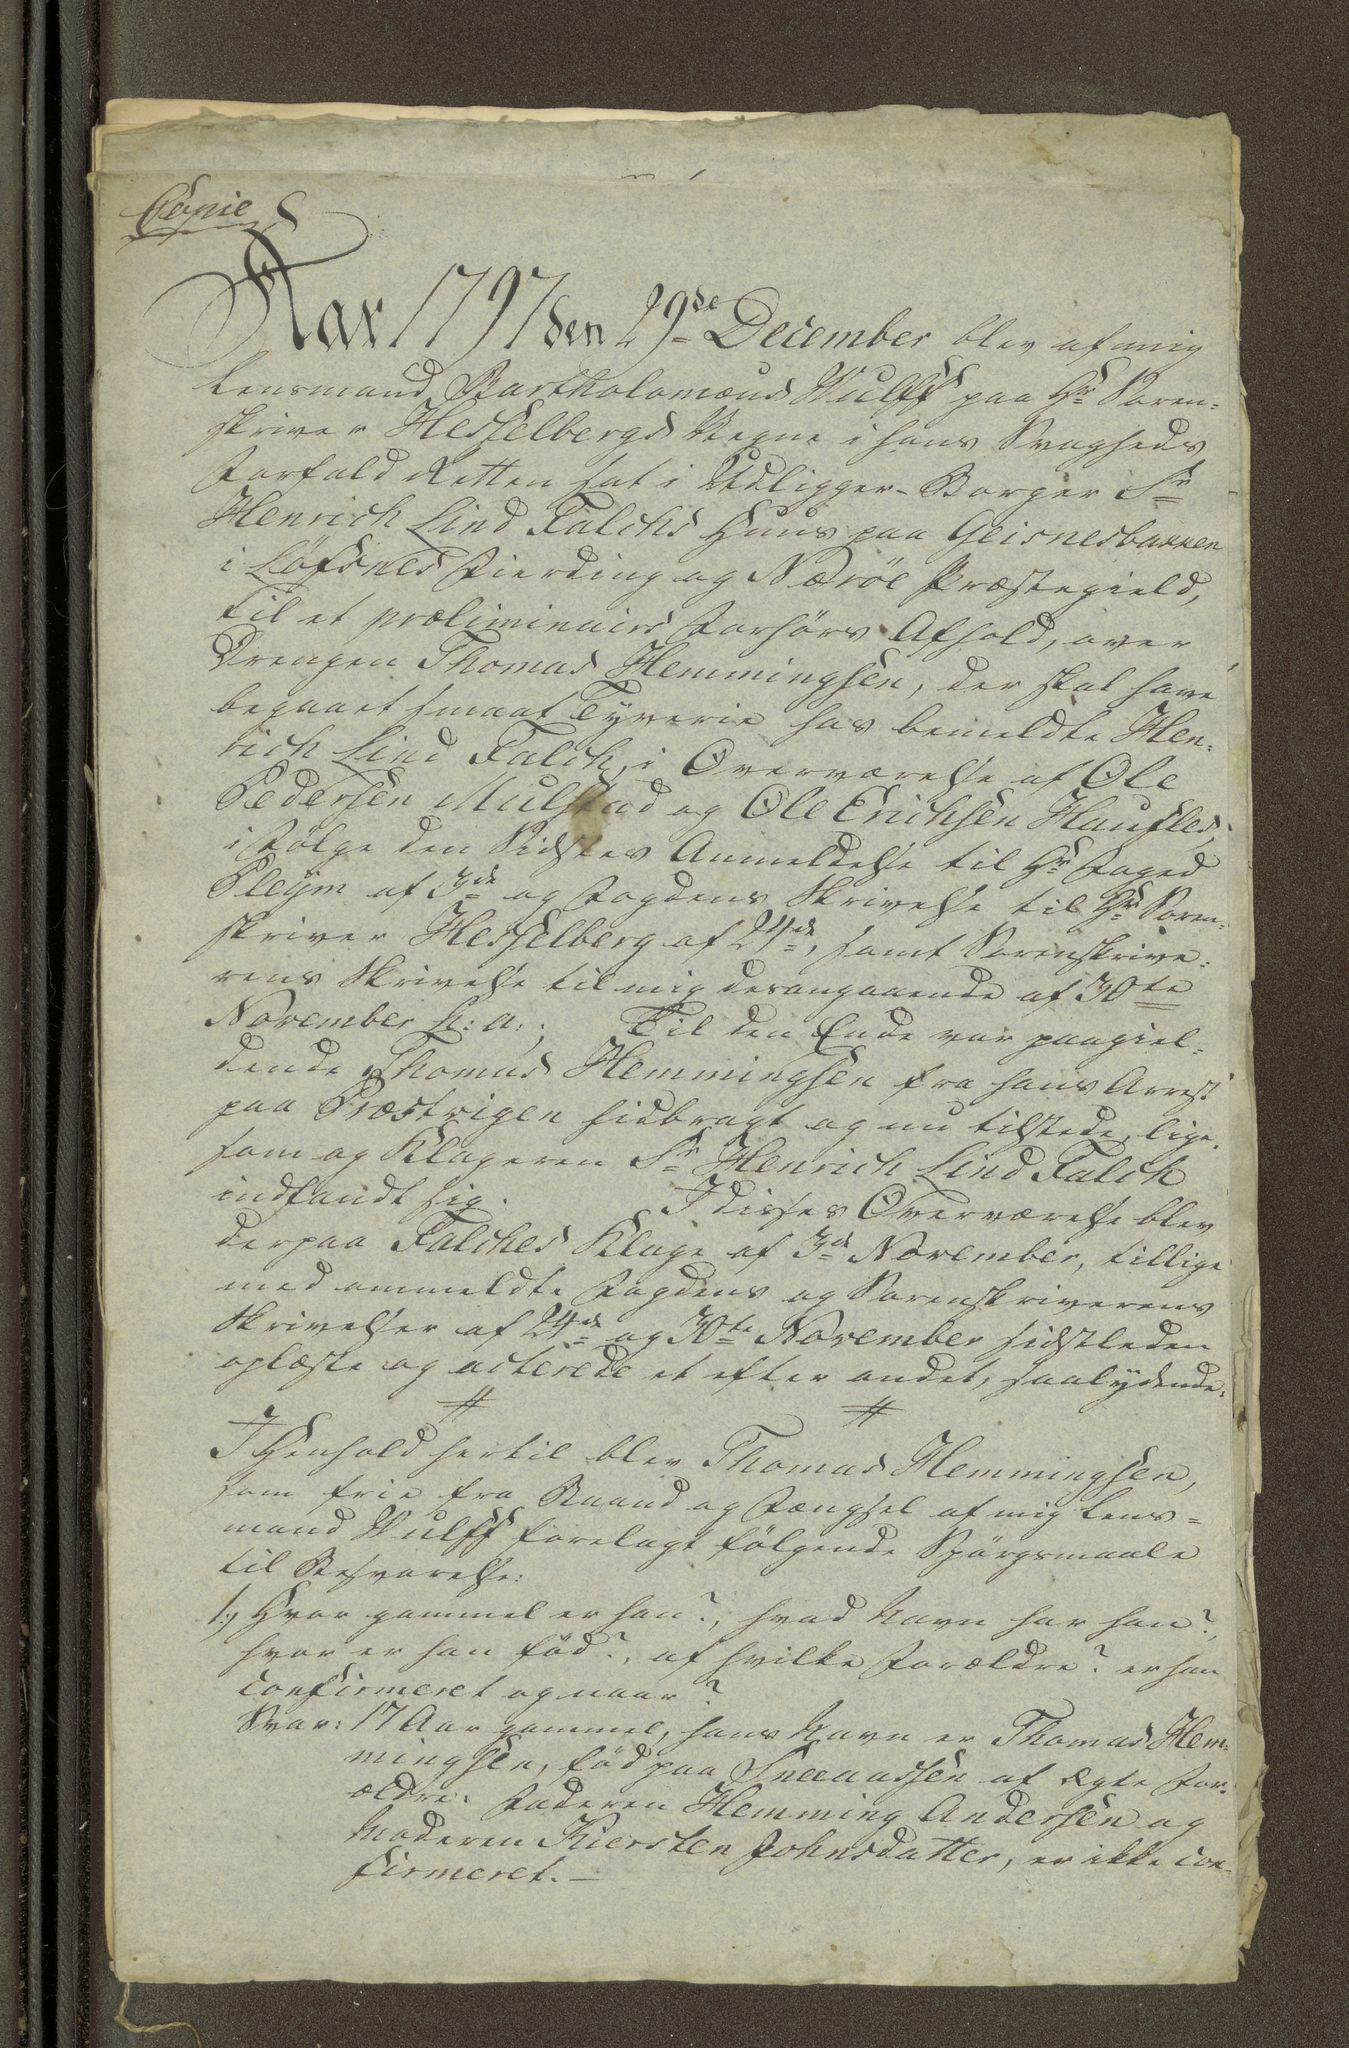 Copie
Aar 1797 den 29de December blev af mig
Lensmand Bartholomæus Wulff paa Hr Soren-
skriver Hesselbergs Vegne i hans Svagheds
Forfald Retten sat i Udligger-Borger Sr
Henrich Lind Falchs Huus paa Geisnesbakken
i Løfsnes Fierding og Nærøe Præstegield,
til et præliminairs Forhørs Afhold, over
Drengen Thomas Hemmingsen, der skal have
begaaet smaat Tyverie hos bemeldte Hen-
rich Lind Falch, i Overværelse af Ole
Pedersen Mulstad og Ole Erichsen Haufles;
ifølge den Sidstes Anmeldelse til Hr Foged
Pleÿm af 3de og Fogdens Skrivelse til Hr Soren-
skriver Hesselberg af 24de, samt Sorenskrive-
rens Skrivelse til mig desangaaende af 30te
November h: a:, Til den Ende var paagiel-
dende Thomas Hemmingsen fra hans Arrest
paa Præstvigen hidbragt og nu tilstede, lige-
som og Klageren Sr Henrich Lind Falch
indfandt sig. I disses Overværelse blev
derpaa Falches Klage af 3de November, tillige
med ommeldte Fogdens og Sorenskriverens
Skrivelser af 24de og 30te November sidstleden
oplæste og acterede et efter andet, saalÿdende:
# #
I Henhold hertil blev Thomas Hemmingsen,
som frie fra Baand og Fængsel af mig Lens-
mand Wulff forelagt følgende Spørgsmaale
til Besvarelse:
1.) Hvor gammel er han?, hvad Navn har han?,
hvor er han fød?, af hvilke Forældre? er han
confirmeret og naar?
Svar: 17 Aar gammel, hans Navn er Thomas Hem-
mingsen, fød paa Sneeaasen af Ægte For-
ældre: Faderen Hemming Andersen og
Moderen Kiersten Johnsdatter, er ikke con-
firmeret. —